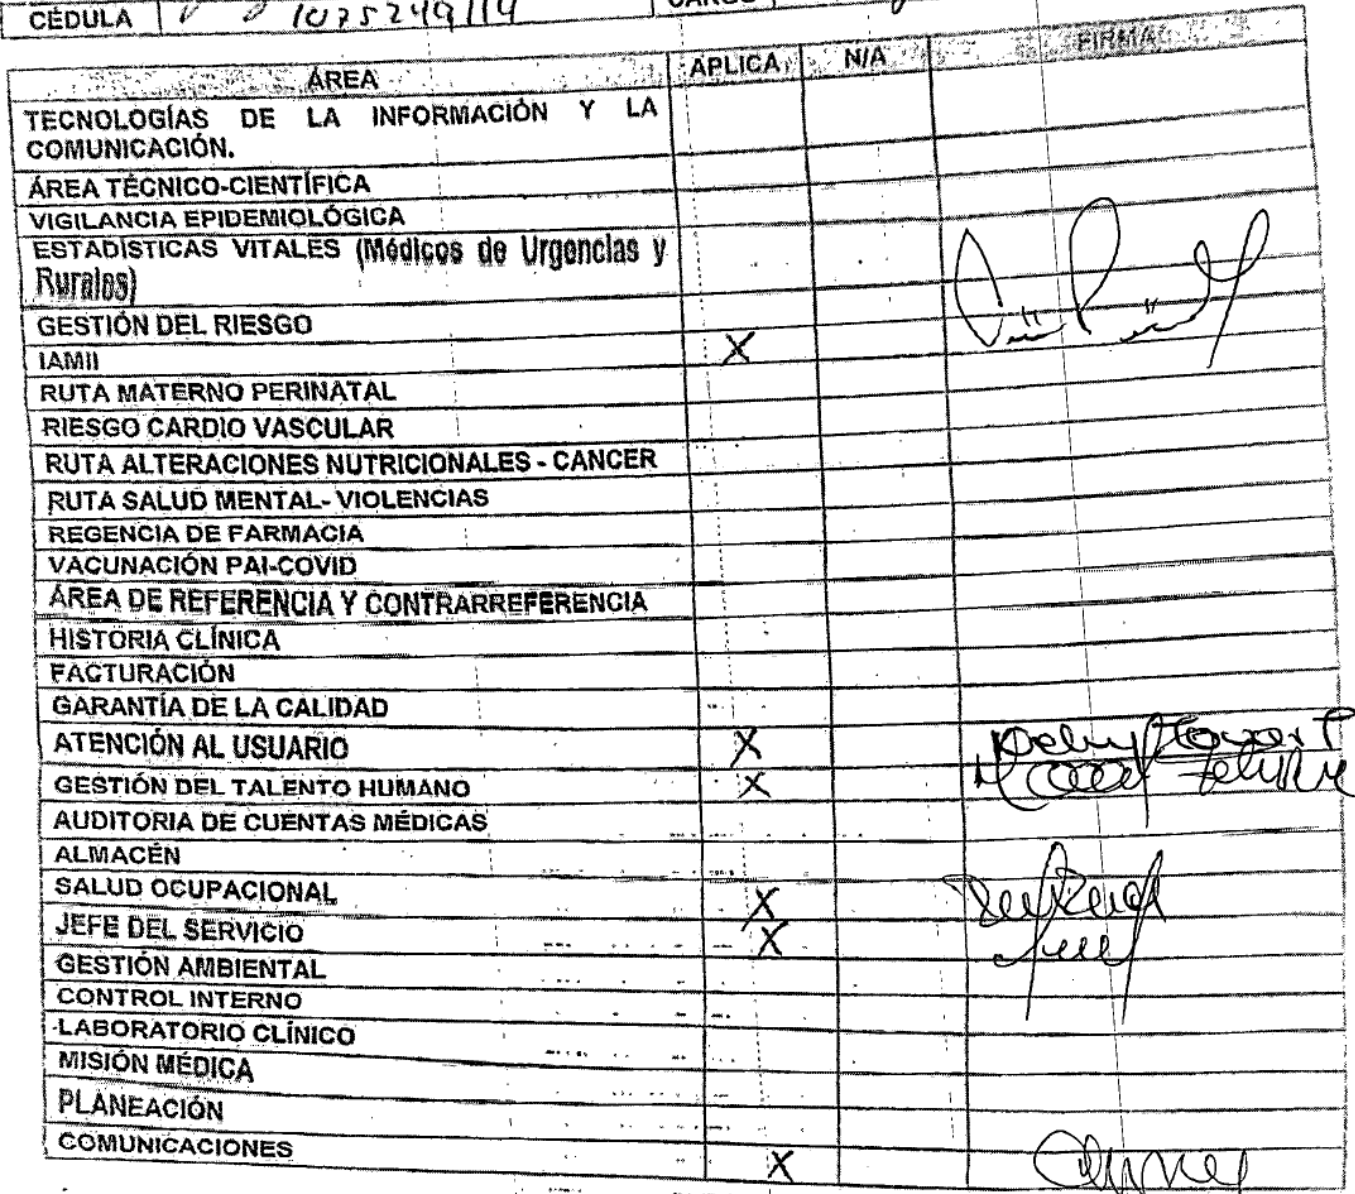 CÉDULA 1075249114 CARGO
ÁREA APLICA N/A FIRMA
TECNOLOGÍAS DE LA INFORMACIÓN Y LA
COMUNICACIÓN.
ÁREA TÉCNICO-CIENTÍFICA
VIGILANCIA EPIDEMIOLÓGICA
ESTADÍSTICAS VITALES (Médicos de Urgencias y
Rurales)
GESTIÓN DEL RIESGO
IAMII X
RUTA MATERNO PERINATAL
RIESGO CARDIO VASCULAR
RUTA ALTERACIONES NUTRICIONALES - CANCER
RUTA SALUD MENTAL- VIOLENCIAS
REGENCIA DE FARMACIA
VACUNACIÓN PAI-COVID
ÁREA DE REFERENCIA Y CONTRARREFERENCIA
HISTORIA CLÍNICA
FACTURACIÓN
GARANTÍA DE LA CALIDAD
ATENCIÓN AL USUARIO X
GESTIÓN DEL TALENTO HUMANO X
AUDITORIA DE CUENTAS MÉDICAS
ALMACÉN
SALUD OCUPACIONAL X
JEFE DEL SERVICIO X
GESTIÓN AMBIENTAL
CONTROL INTERNO
LABORATORIO CLÍNICO
MISIÓN MÉDICA
PLANEACIÓN
COMUNICACIONES X